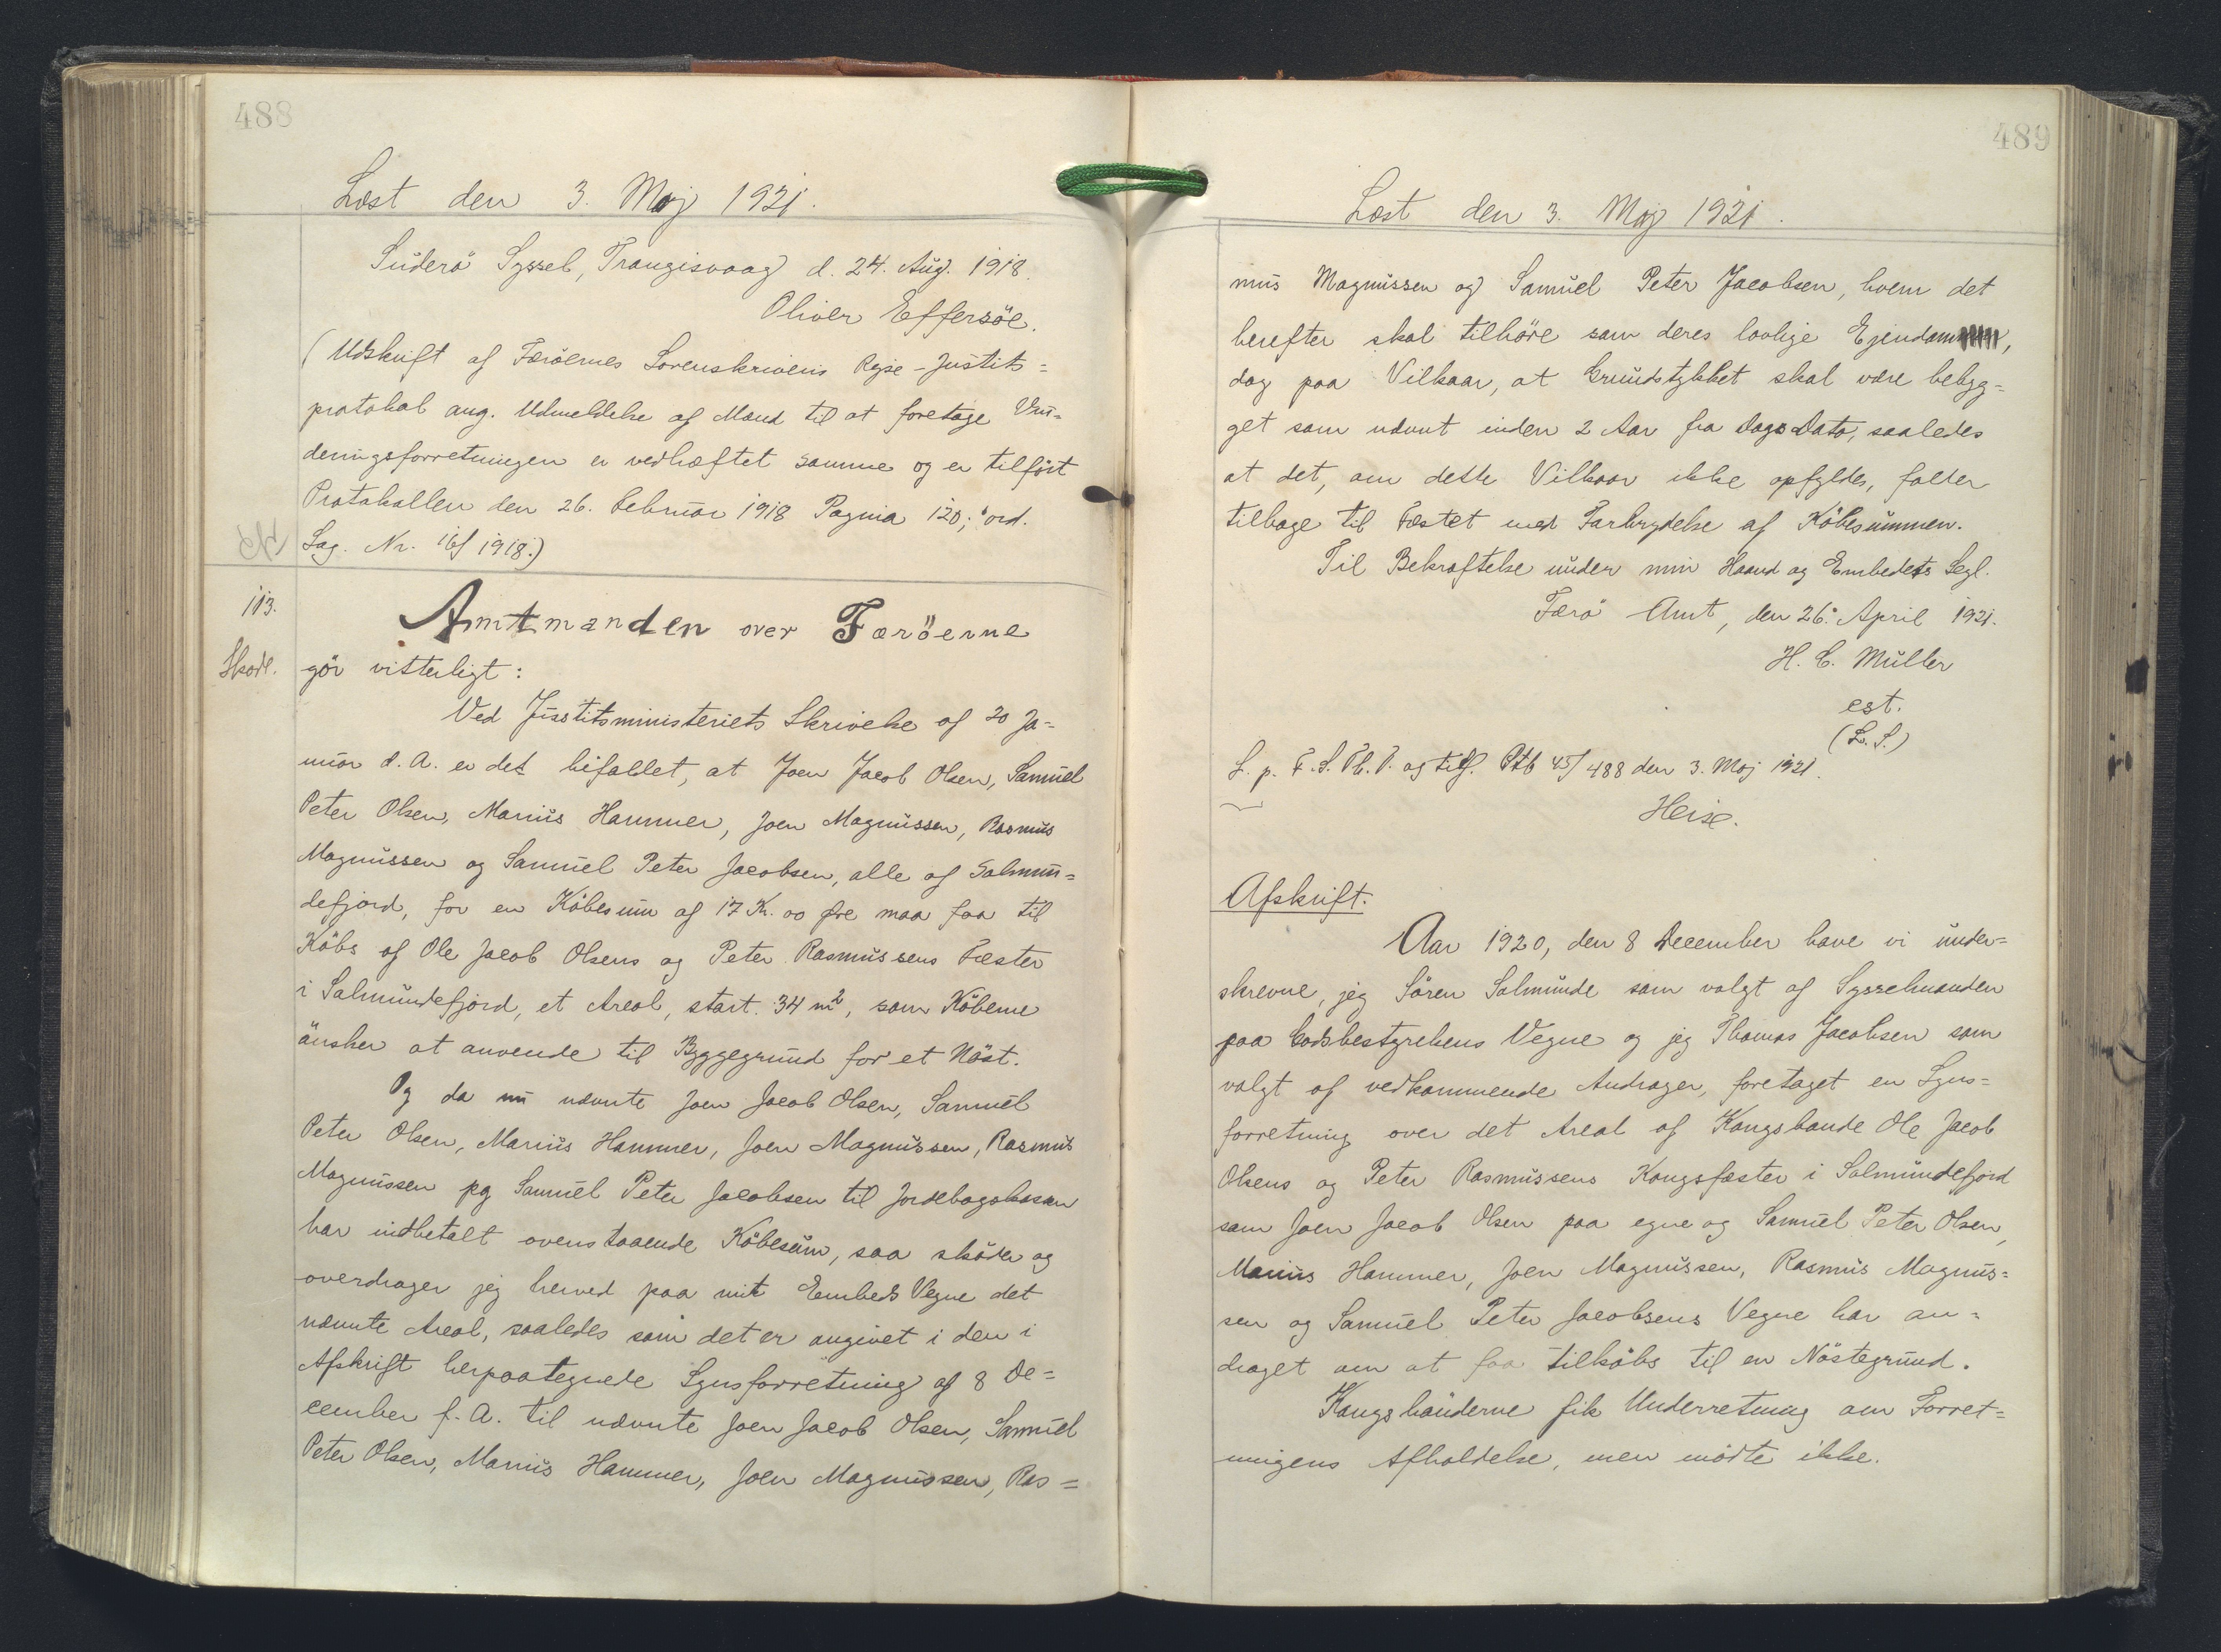 488
Læst den 3. Maj 1921.
Suderö Syssel, Trangisvaag d. 24. Aug. 1918.
Oliver Effersöe.
(Udskrift af Færöernes Sorenskriveris Rejse-Justits=
protokol ang. Udmeldelse af Mænd til at foretage Vur=
deringsforretningen er vedhæftet samme og er tilfört
Protokollen den 26. Februar 1918 Pagina 120; ord.
Sag. Nr. 16/1918.)
113.
Skøde.
Amtmanden over Færöerne
gör vitterligt:
Ved Justitsministeriets Skrivelse af 20 Ja=
nuar d. A. er det bifaldet, at Joen Jacob Olsen, Samuel
Peter Olsen, Marius Hammer, Joen Magnussen, Rasmus
Magnussen og Samuel Peter Jacobsen, alle af Salmun=
defjord, for en Köbesum af 17 Kr. 00 Øre maa faa til
Köbs af Ole Jacob Olsens og Peter Rasmussens Fæster
i Salmundefjord, et Areal, stort. 34 m2, som Köberne
önsker at anvende til Byggegrund for et Nöst.
Og da nu nævnte Joen Jacob Olsen, Samuel
Peter Olsen, Marius Hammer, Joen Magnussen, Rasmus
Magnussen og Samuel Peter Jacobsen til Jordebogskassen
har indbetalt ovenstaaende Köbesum, saa sköder og
overdrager jeg herved paa mit Embeds Vegne det
nævnte Areal, saaledes som det er angivet i den i
Afskrift herpaategnede Synsforretning af 8 De=
cember f. A. til nævnte Joen Jacob Olsen, Samuel
Peter Olsen, Marius Hammer, Joen Magnussen, Ras=
489
Læst den 3. Maj 1921.
mus Magnussen og Samuel Peter Jacobsen, hvem det
herefter skal tilhöre som deres lovlige Ejendom,
dog paa Vilkaar, at Grundstykket skal være bebyg=
get som nævnt inden 2 Aar fra Dags Dato, saaledes
at det, om dette Vilkaar ikke opfyldes, falder
tilbage til Fæstet med Forbrydelse af Köbesummen.
Til Bekræftelse under min Haand og Embedets Segl.
Færö Amt, den 26. April 1921.
H. C. Müller
est.
(L. S.)
L. p. F. S. Tb. P. og tilf. Ptb 45/488 den 3. Maj 1921.
Heise.
Afskrift.
Aar 1920, den 8 December have vi under=
skrevne, jeg Sören Salmunde som valgt af Sysselmanden
paa Godsbestyrelsens Vegne og jeg Thomas Jacobsen som
valgt af vedkommende Andrager, foretaget en Syns=
forretning over det Areal af Kongsbonde Ole Jacob
Olsens og Peter Rasmussens Kongsfæster i Salmundefjord
som Joen Jacob Olsen paa egne og Samuel Peter Olsen,
Marius Hammer, Joen Magnussen, Rasmus Magnus=
sen og Samuel Peter Jacobsens Vegne har an=
draget om at faa tilköbs til en Nöstegrund.
Kongsbönderne fik Underretning om Forret=
ningens Afholdelse, men mödte ikke.